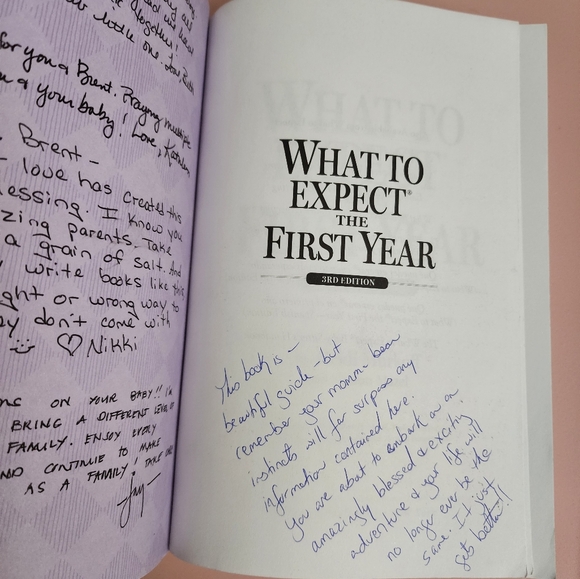 my all
and we can
Together!
little one. Love
for you & Brent. Praying
& your baby! Love, Kathleen
Brent –
love has created this
essing. I know you
zing parents. Take
a grain of salt. And
write books like this
ght or wrong way to
don't come with
♡ Nikki
ON YOUR BABY!! I'm
BRING A DIFFERENT LEVEL OF
FAMILY. ENJOY EVERY
ND CONTINUE TO MAKE
AS A FAMILY! TAKE
WHAT TO
EXPECT®
THE
FIRST YEAR
3RD EDITION
This book is –
beautiful guide – but
remember your momma bear
instincts will far surpass any
information contained here.
You are about to embark on an
amazingly blessed & exciting
adventure & your life will
no longer ever be the
same. It just
gets better!!